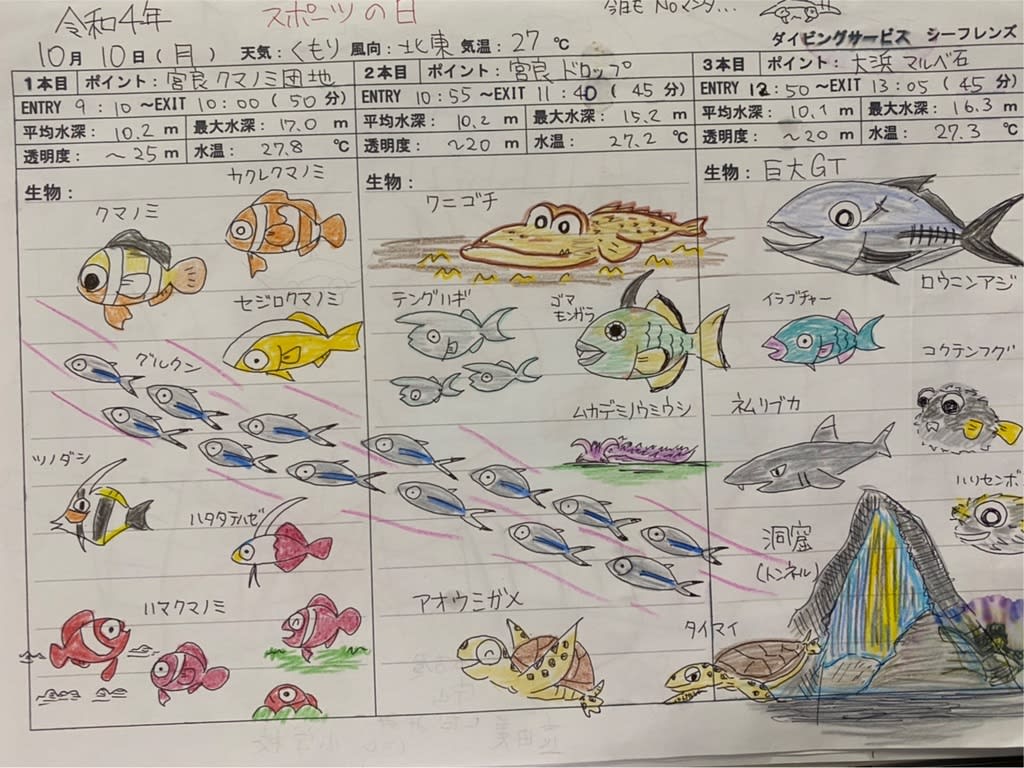 令和4年 スポーツの日 今日も Noマンタ...
ダイビングサービス シーフレンズ
10月 10日(月) 天気:くもり 風向:北東 気温:27 ℃
1本目 ポイント:宮良クマノミ団地
ENTRY 9:10 ~EXIT 10:00 (50分)
平均水深:10.2 m 最大水深:17.0 m
透明度:~25 m 水温:27.8 ℃
生物:
カクレクマノミ
クマノミ
セジロクマノミ
グルクン
ツノダシ
ハタタテハゼ
ハマクマノミ
2本目 ポイント:宮良ドロップ
ENTRY 10:55 ~EXIT 11:40 (45分)
平均水深:10.2 m 最大水深:15.2 m
透明度:~20 m 水温:27.2 ℃
生物:
ワニゴチ
テングハギ
ゴマ
モンガラ
ムカデミノウミウシ
アオウミガメ
3本目 ポイント:大浜マルベ石
ENTRY 12:50 ~EXIT 13:05 (45分)
平均水深:10.1 m 最大水深:16.3 m
透明度:~20 m 水温:27.3 ℃
生物:巨大GT
ロウニンアジ
イラブチャー
コクテンフグ
ネムリブカ
ハリセンボ
洞窟
(トンネル)
タイマイ